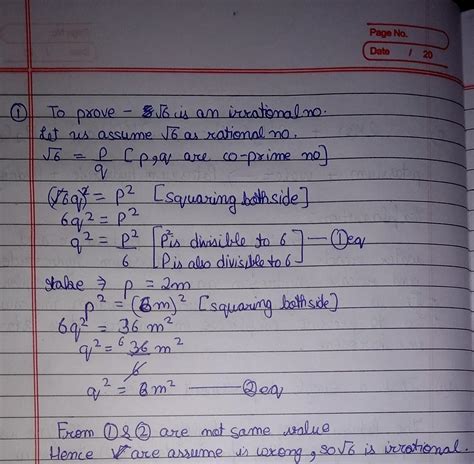 Page No.
Date / 20
① To prove - √6 is an irrational no.
Let us assume √6 as rational no.
√6 = p/q [p,q are co-prime no]
(√6q)² = P² [squaring bothside]
6q² = P²
q² = P²/6 [P² is divisible to 6] — ① eq
[P is also divisible to 6]
⇒ p = 2m
p² = (6m)² [squaring bothside]
6q² = 36 m²
q² = 36 m²/6
q² = 6m² — ② eq
From ① & ② are not same value
Hence are assume is wrong, so √6 is irrational.